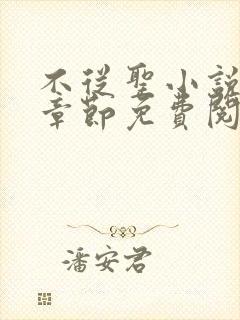 不從聖小說
章節免費閱
潘安君